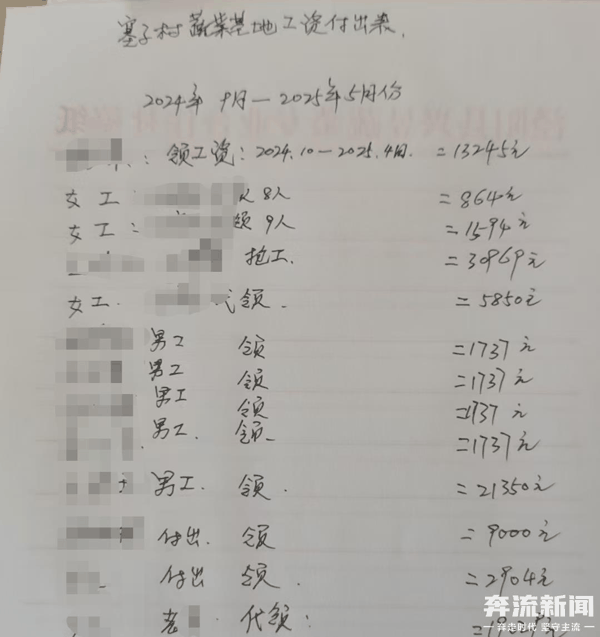 寨子村蔬菜基地工资付出表.
2024年 9月—2025年5月份
: 领工资: 2024.10—2025.4月. =13245元
女工: 8人 =864元
女工: 领 9人 =1594元
抢工. =30969元
女工. 领. =5850元
男工 领 =1737元
男工 领 =1737元
男工 领 =1737元
男工. 领. =1737元
男工. 领. =21350元
付出. 领 =9000元
付出 领. =2904元
老 代领:
奔流新闻
奔走时代 坚守主流